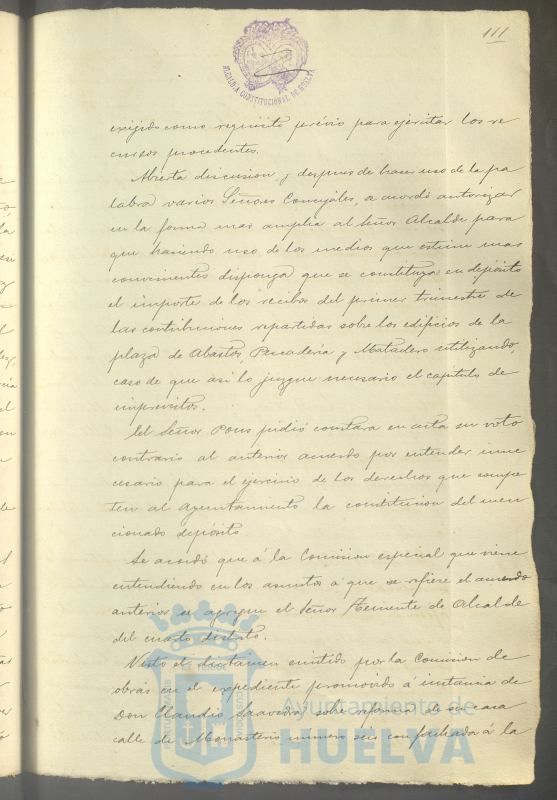 111
ALCALDIA CONSTITUCIONAL DE HUELVA
exijido como requisito prévio para ejercitar los re
cursos procedentes.
Abierta discusion, y despues de hacer uso de la pa
labra varios Señores Concejáles, se acordó autorizar
en la forma mas amplia al Señor Alcalde para
que haciendo uso de los medios que estime mas
convenientes disponga que se constituya en depósito
el importe de los recibos del primer trimestre de
las contribuciones repartidas sobre los edificios de la
plaza de Abastos, Pescadería y Matadero utilizando,
caso de que asi lo juzgue necesario el capitulo de
imprevistos.
El Señor Pons pidió constara en acta su voto
contrario al anterior acuerdo por entender inne
cesario para el ejercicio de los derechos que compe
ten al Ayuntamiento la constitucion del men
cionado depósito
Se acordó que á la Comision especial que viene
entendiendo en los asuntos á que se refiere el acuerdo
anterior se agregue el Señor Teniente de Alcalde
del cuarto distrito.
Visto el dictamen emitido por la Comision de
obras en el expediente promovido á instancia de
Don Claudio Saavedra sobre reforma de su casa
calle de Monasterio número seis con fachada á la
Ayuntamiento de
HUELVA